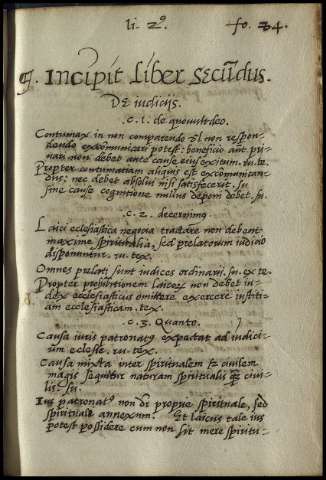 li. 2º. fo. 34.
¶. Incipit liber secūdus.
DE iudiciis.
.c.1. de quouultdeo.
Contumax in non comparendo El non respon-
dendo excōmunicari potest: beneficio aut pri-
uari non debet ante cause eius exitum. ru. te.
Propter contumatiam aliquis est excōmunican-
dus: nec debet absolui nisi satisfecerit. su
sine cause cognitione nullus depom debet. su
.c.2. decernimꝰ
Laici ecclesiastica negocia tractare non debent
maxime spiritualia, sed prelatorum iudicio
disponuntur. ru. tex.
Omnes prelati sunt iudices ordinarii. su. ex te.
Propter prohibitionem laicorū non debet iu-
dex ecclesiasticus omittere exercere iustiti-
am ecclesiasticam. tex.
.c.3. Quanto.
Causa iuris patronatꝰ expectat ad iudici-
um eclesie. ru. tex.
Causa mixta inter spiritualem & ciuilem
magis sequitur naturam spiritualis quam ciui-
lis. su.
Ius patronatꝰ non dr proprie spirituale, sed
spirituale annexum. Et laicus tale ius
potest possidere cum non sit mere spiritu-